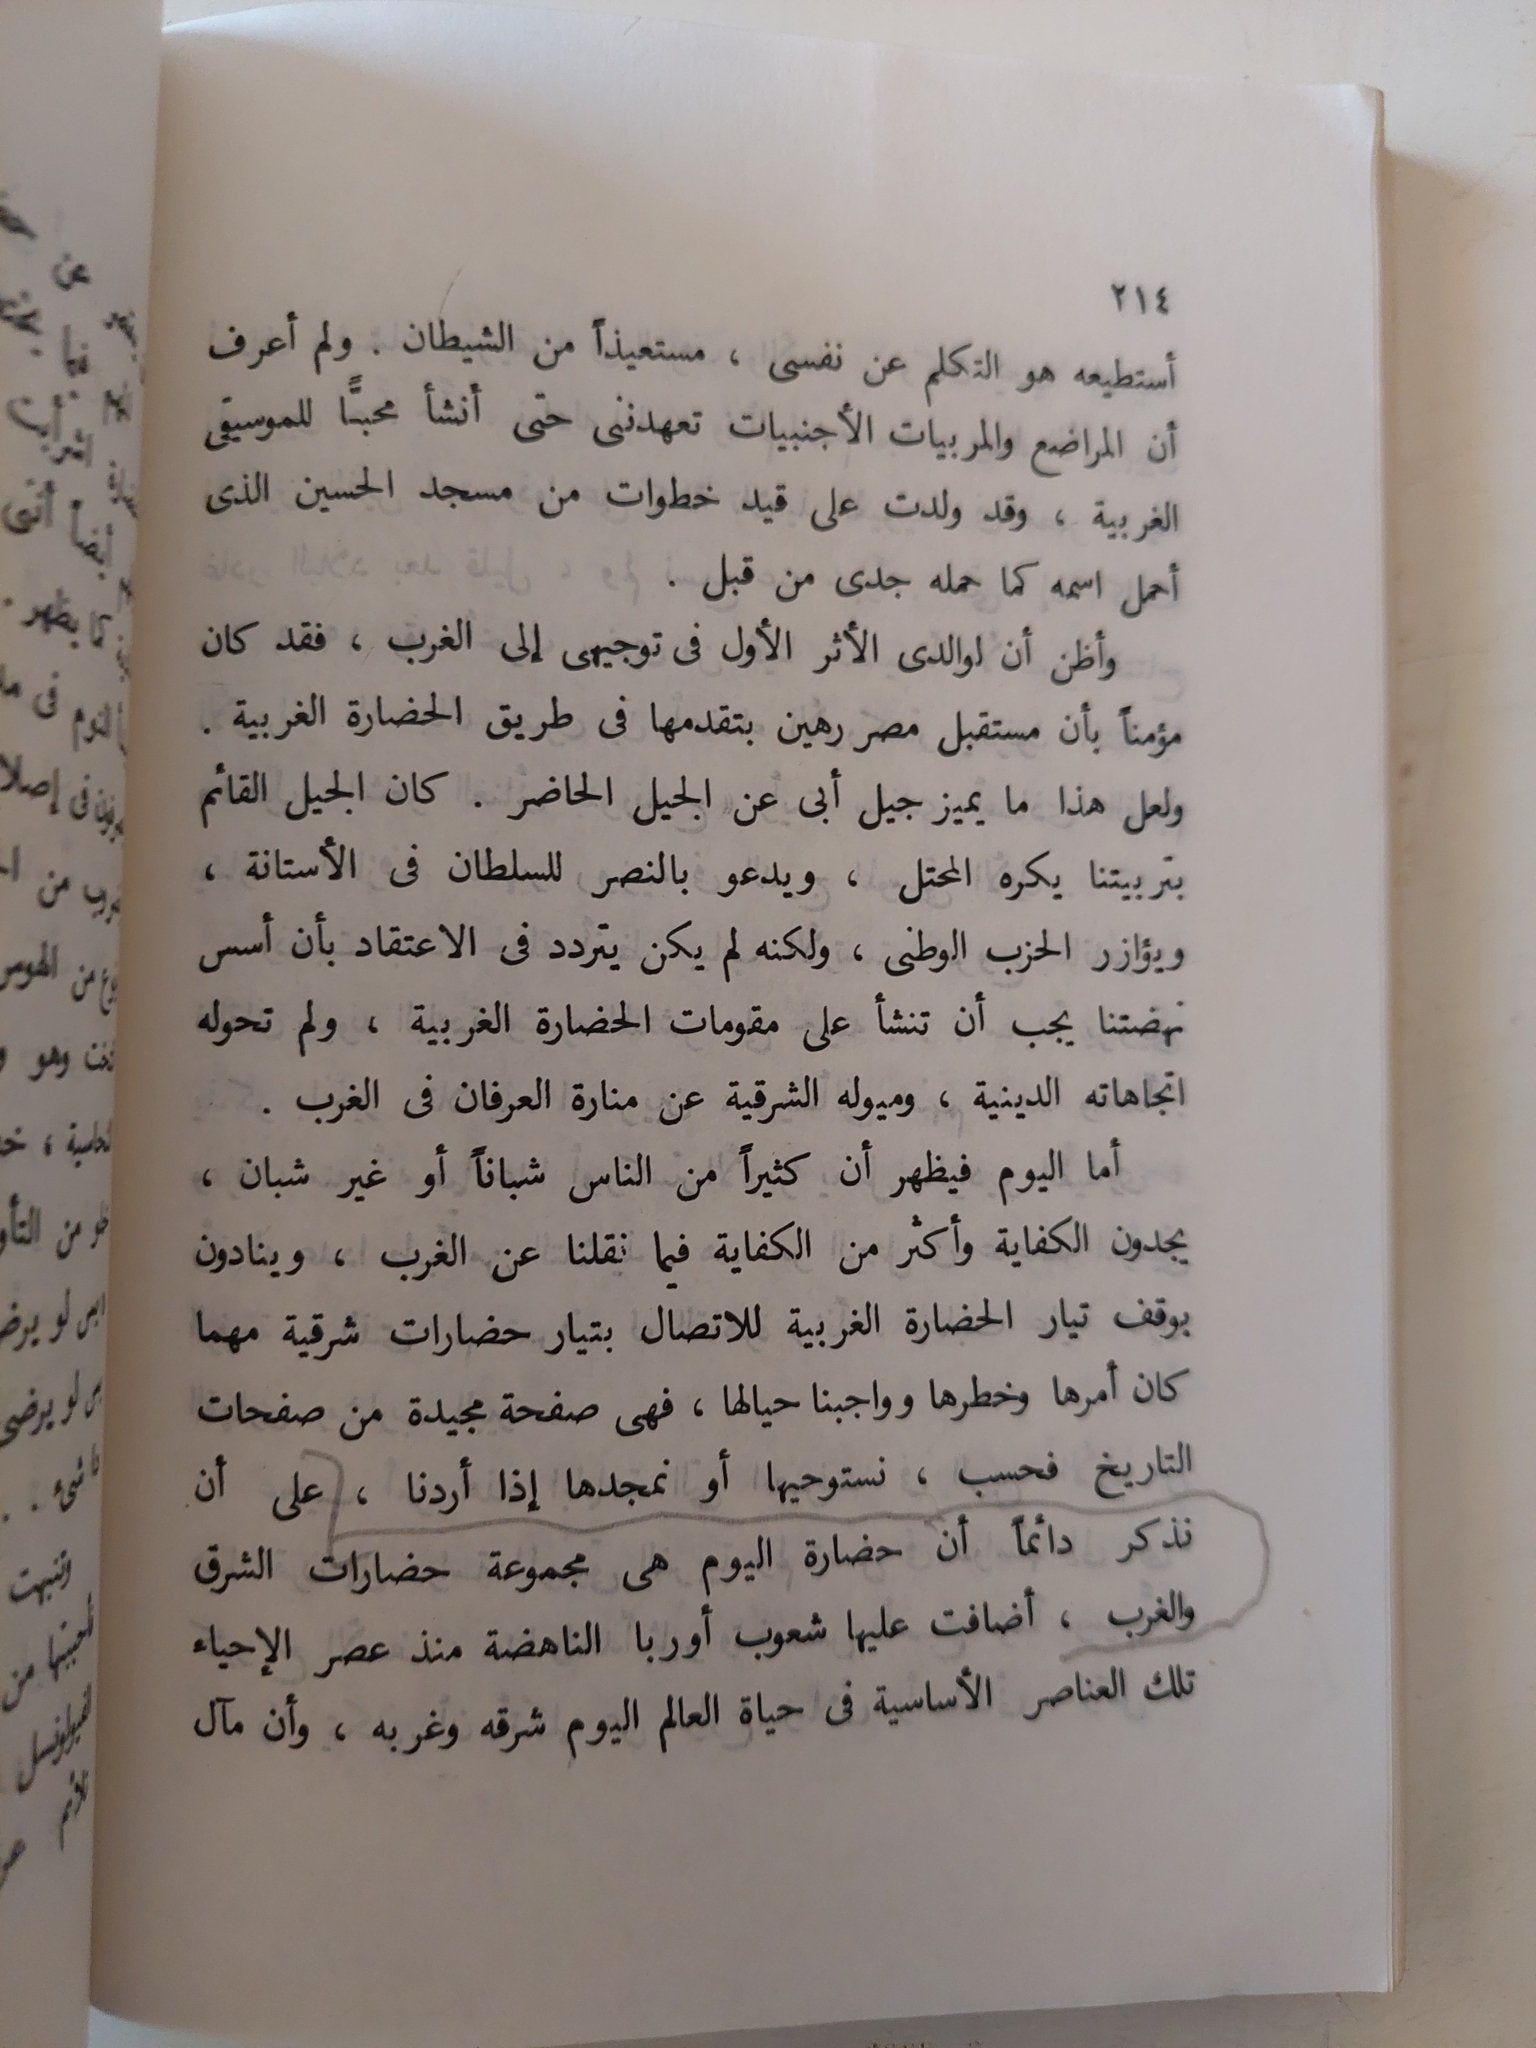 ٢١٤
أستطيعه هو التكلم عن نفسى ، مستعيذاً من الشيطان . ولم أعرف
أن المراضع والمربيات الأجنبيات تعهدننى حتى أنشأ محبًّا للموسيقى
الغربية ، وقد ولدت على قيد خطوات من مسجد الحسين الذى
أحمل اسمه كما حمله جدى من قبل .
وأظن أن لوالدى الأثر الأول فى توجيهى إلى الغرب ، فقد كان
مؤمناً بأن مستقبل مصر رهين بتقدمها فى طريق الحضارة الغربية .
ولعل هذا ما يميز جيل أبى عن الجيل الحاضر . كان الجيل القائم
بتربيتنا يكره المحتل ، ويدعو بالنصر للسلطان فى الأستانة ،
ويؤازر الحزب الوطنى ، ولكنه لم يكن يتردد فى الاعتقاد بأن أسس
نهضتنا يجب أن تنشأ على مقومات الحضارة الغربية ، ولم تحوله
اتجاهاته الدينية ، وميوله الشرقية عن منارة العرفان فى الغرب .
أما اليوم فيظهر أن كثيراً من الناس شباناً أو غير شبان ،
يجدون الكفاية وأكثر من الكفاية فيما نقلنا عن الغرب ، وينادون
بوقف تيار الحضارة الغربية للاتصال بتيار حضارات شرقية مهما
كان أمرها وخطرها وواجبنا حيالها ، فهى صفحة مجيدة من صفحات
التاريخ فحسب ، نستوحيها أو نمجدها إذا أردنا ، على أن
نذكر دائماً أن حضارة اليوم هى مجموعة حضارات الشرق
والغرب ، أضافت عليها شعوب أوربا الناهضة منذ عصر الإحياء
تلك العناصر الأساسية فى حياة العالم اليوم شرقه وغربه ، وأن مآل